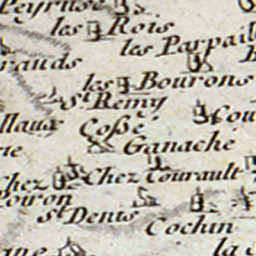 Peyruse
les Rois
les Parpail
rauds
les Bourons
St Remy
Cou
llaux Cossé
Ganaché
Chez Tourault
hez
oiron
St Denis
Cochin
la